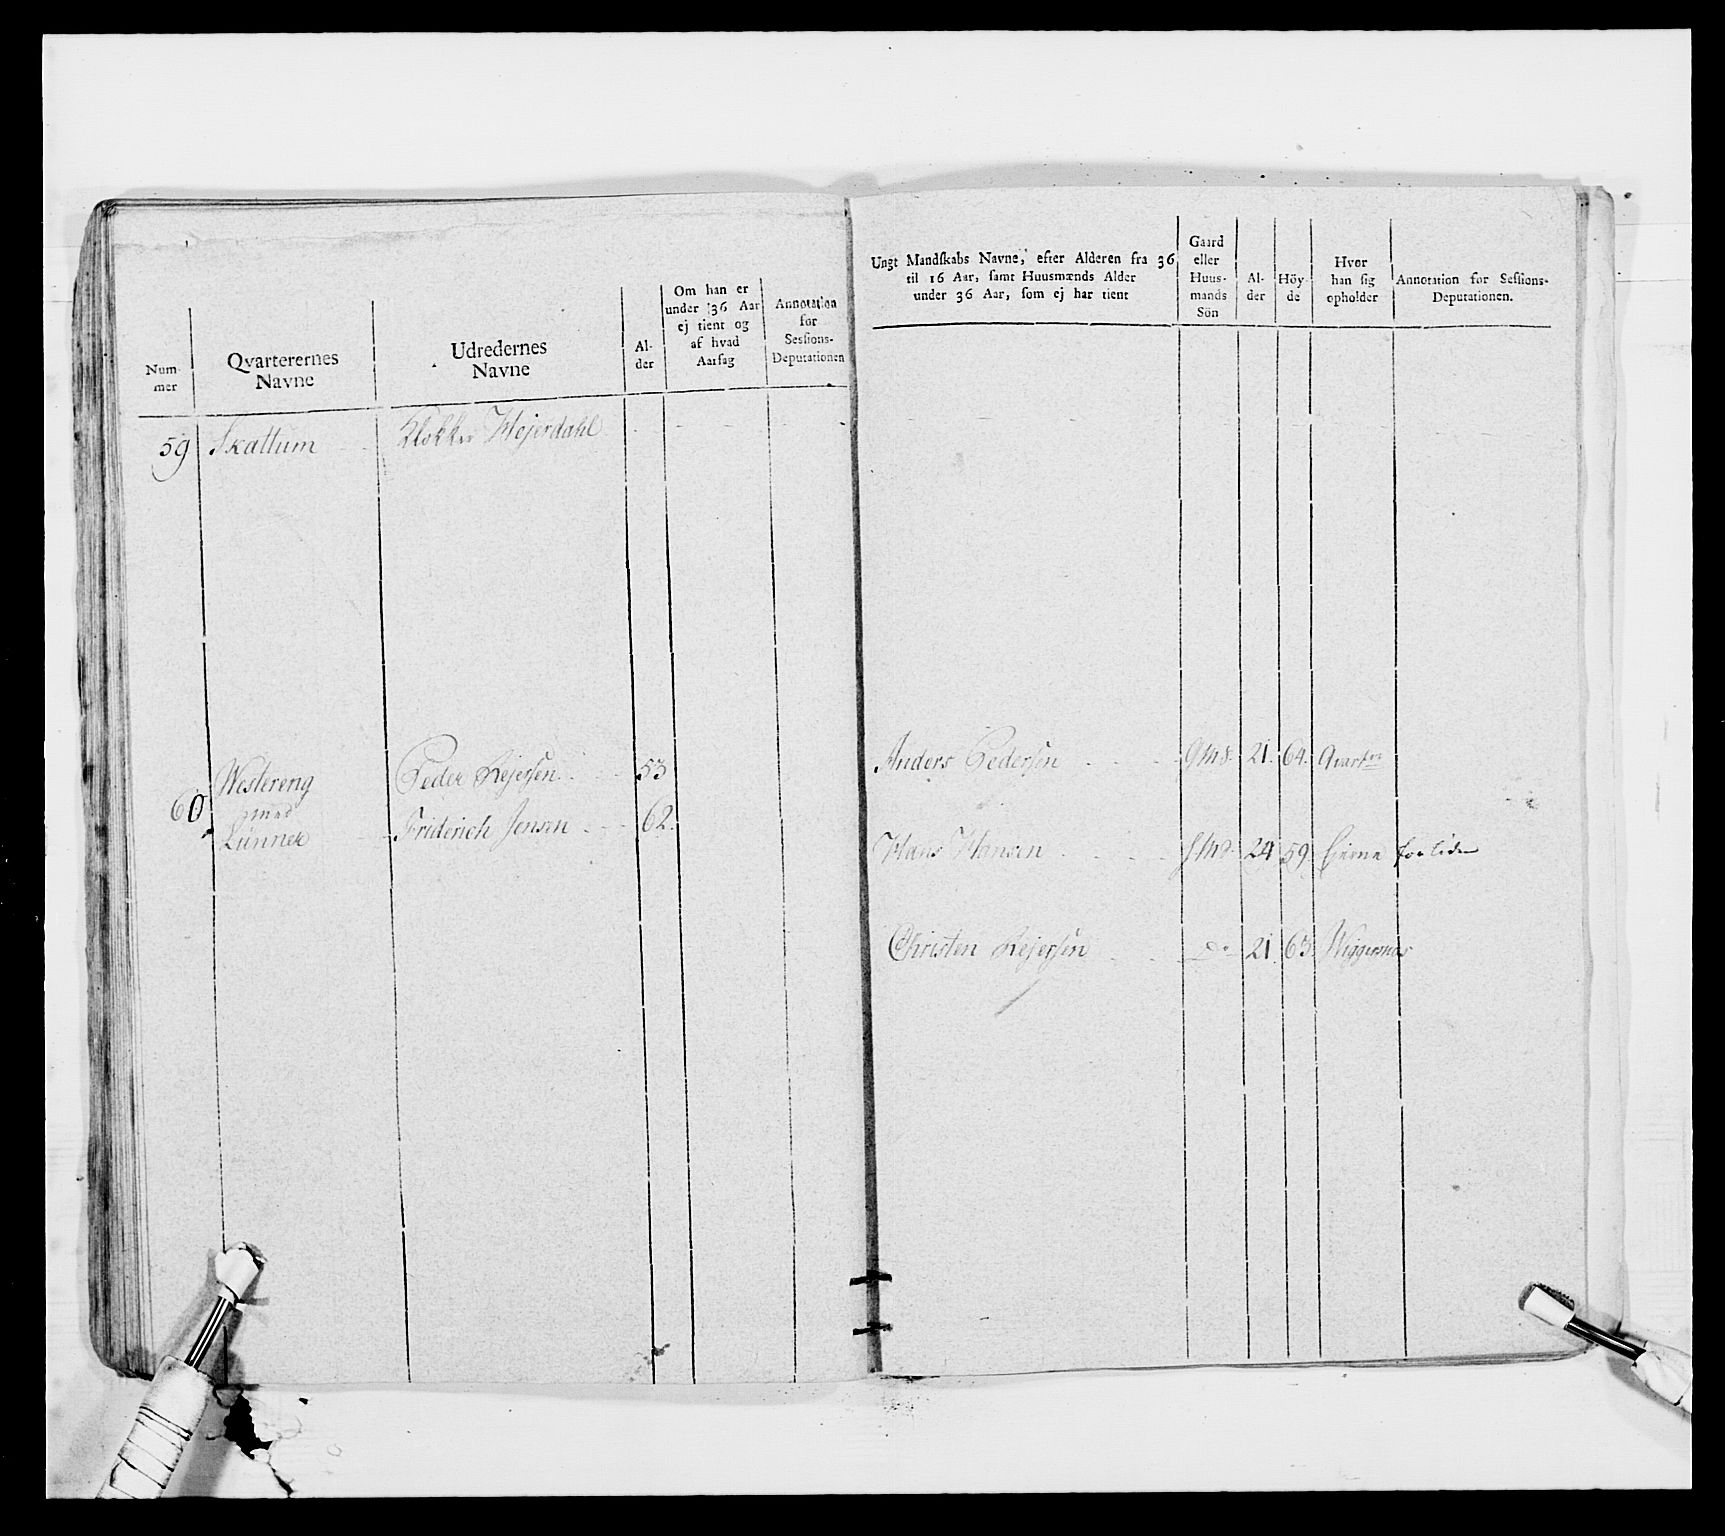 Num-
mer
Qvarterernes
Navne
Udredernes
Navne
Al-
der
Om han er
under 36 Aar
ej tient og
af hvad
Aarsag
Annotation
for
Sessions-
Deputationen
59 Skattum Klokker Hejerdahl
Westereng Peder Rejersen 53
60 med
Lunner Friderich Jensen 62.
Ungt Mandskabs Navne, efter Alderen fra 36
til 16 Aar, samt Huusmænds Alder
under 36 Aar, som ej har tient
Gaard
eller
Huus-
mands
Sön
Al-
der
Höy-
de
Hvor
han sig
opholder
Annotation for Sessions-
Deputationen.
Anders Pedersen 21. 64.
Hans Hansen 24 59
Christen Rejersen Do 21. 63